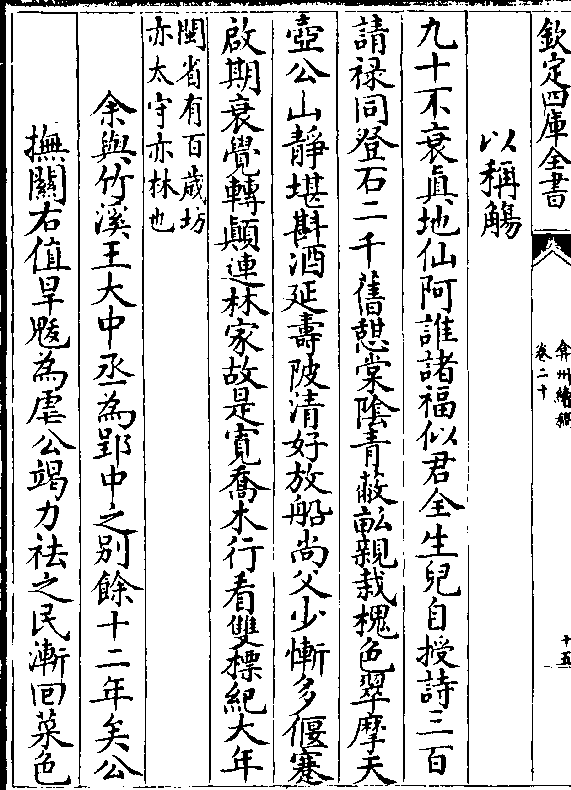 欽定四庫全書
弇州續稿
卷二十
十五
以稱觴
九十不衰真地仙阿誰諸福似君全生兒自授詩三百
請祿同登石二千舊憇棠陰青蔽畆親栽槐色翠摩天
壺公山靜堪斟酒延壽陂清好放船尚父少慚多偃蹇
啟期衰覺轉顛連林家故是寛喬木行看雙標紀大年
閩省有百歲坊
亦太守亦林也
余與竹溪王大中丞為郢中之别餘十二年矣公
撫關右值旱魃為虐公竭力祛之民漸回菜色